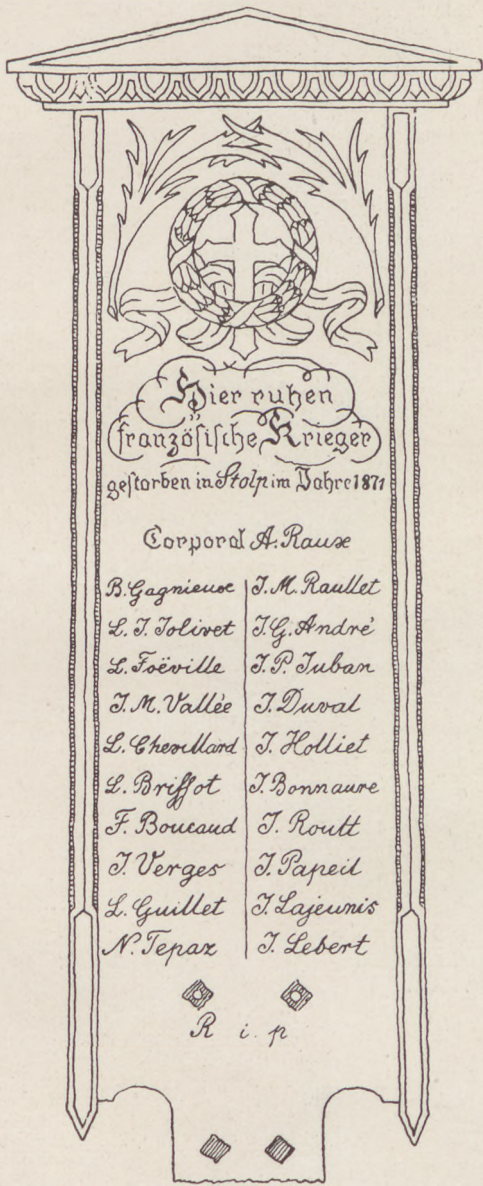 Hier ruhen
französische Krieger
gestorben in Stolp im Jahre 1871
Corporal A. Raux
B. Gagnieux
L. J. Jolivet
L. Foëville
J. M. Vallée
L. Chevillard
L. Briffot
F. Boucaud
J. Verges
L. Guillet
N. Tepaz
J. M. Raullet
J. G. André
J. P. Juban
J. Duval
J. Holliet
J. Bonnaure
J. Routt
J. Papeil
J. Lajeunis
J. Lebert
R i. p